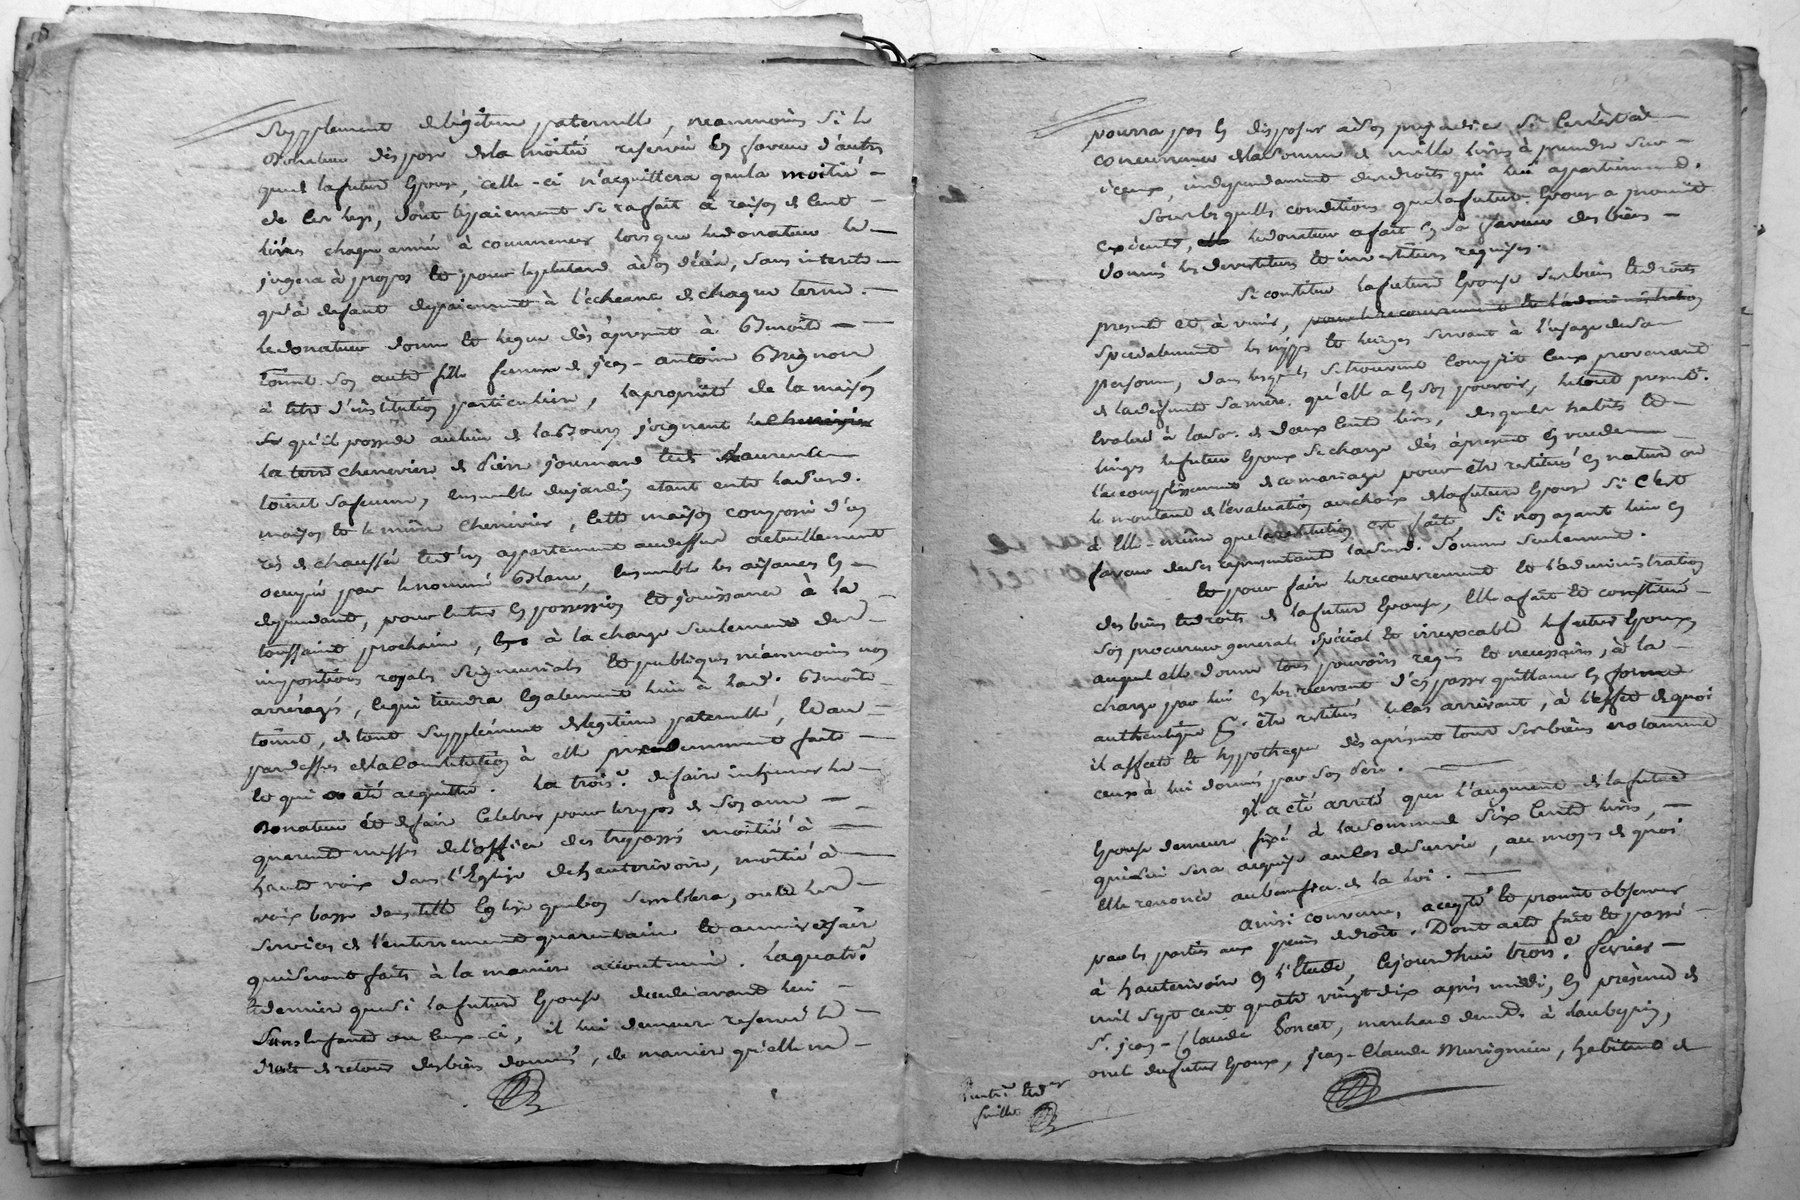 supplement de légitime paternelle, neanmoins si le
donateur dispose de la moitié reservée en faveur d'autres
que de la future Epouse, celle-ci n'acquittera que la moitié
de ce legs, dont le paiement se rafait à raison de Cent
livres chaque année à commencer lorsque le donateur le
jugera à propos et pour le plutard à son décès, sans interets
qu'à defaut de paiement à l'echeance de chaque terme.
le donateur donne et legue dès àpresent à Benoite
toinet son autre fille femme de jean-antoine
à titre d'institution particuliere, la propriété de la maison
qu'il possede au lieu de la joignant
la terre cheneviere de pierre journard et de laurence
toinet sa femme, ensemble du jardin etant entre lad.
maison et le même Chenevier, cette maison composée d'un
rès de chaussée et d'un appartement audessus actuellement
occupé par le nommé Blanc, ensemble les aisances en
dependant, pour entrer en possession et jouissance à la
toussaint prochaine, à la charge seulement des
impositions royales seigneuriales et publiques néanmoins non
arréragés, ce qui tiendra egalement lieu à lad. Benoite
toinet, de tout supplément de légitime paternelle, et au
pardessus de la Constitution à elle précedemment faite
et qui a été acquittée. La trois.e de faire inhumer le
Donateur et de faire Celebrer pour le repos de son ame
quarente messes de l'office des trepassés moitié à
haute voix dans l'Eglise de hauterivoire, moitié à
voix basse dans telle Eglise que bon semblera, outre les
services de l'enterrement quarentaine et anniversaire
qui seront faits à la maniere accoutumée. La quatr.e
et derniere que si la future Epouse decede avant lui
sans Enfants ou ceux-ci, il lui demeure reservé le
droit de retour des biens donnés, de maniere qu'elle ne
pourra pas en disposer à son prejudice si ce n'est à
concurrence de la somme de mille livres à prendre sur
iceux, independament des droits qui lui appartiennent.
Sous lesquelles conditions que la future Epouse a promit
exécuter, le donateur a fait en sa faveur des biens
donnés les devestitures et investitures requises.
Se constitue la future Epouse ses biens et droits
presents et à venir, pour le recouvrement et l'administration
specialement les nippes et linges servant à l'usage de sa
personne, dans lesquels se trouvent Compris ceux provenant
de la defunte sa mere, qu'elle a en son pouvoir, le tout present.
Evalué à la so. de deux Cents livres, desquels habits et
linges le futur Epoux se charge dès àpresent en vue de
l'accomplissement de ce mariage pour être restitués en nature ou
le montant de l'évaluation au choix de la future Epouse si c'est
à elle-même que la restitution est faite, si non ayant lieu en
faveur de ses representants lad. somme seulement.
et pour faire le recouvrement et l'administration
des biens et droits de la future Epouse, elle a fait et constitué
son procureur general, spécial et irrevocable le futur Epoux
auquel elle donne tous pouvoirs requis et necessaires, à la
charge par lui en les recevant d'en passer quittance en forme
authentique pr. être restitués le cas arrivant, à l'effet de quoi
il affecte et hypotheque dès àprésent tous ses biens notamment
ceux à lui donnés par son pere.
Il a été arreté que l'augment de la future
Epouse demeure fixé à la somme de six Cents livres,
qui lui sera acquise au cas de survie, au moyen de quoi
elle renonce au benefice de la loi.
Ainsi convenu, accepté et promit observer
par les parties aux peines de droit. Dont acte fait et passé
à hauterivoire en l'Etude, cejourd'hui trois.e fevrier
mil sept cent quatre vingt dix après midi, en présence de
s.r jean-Claude Poncet, marchand dem.t à
oncle du futur Epoux, jean-Claude Murigneux, habitant de
feuillet